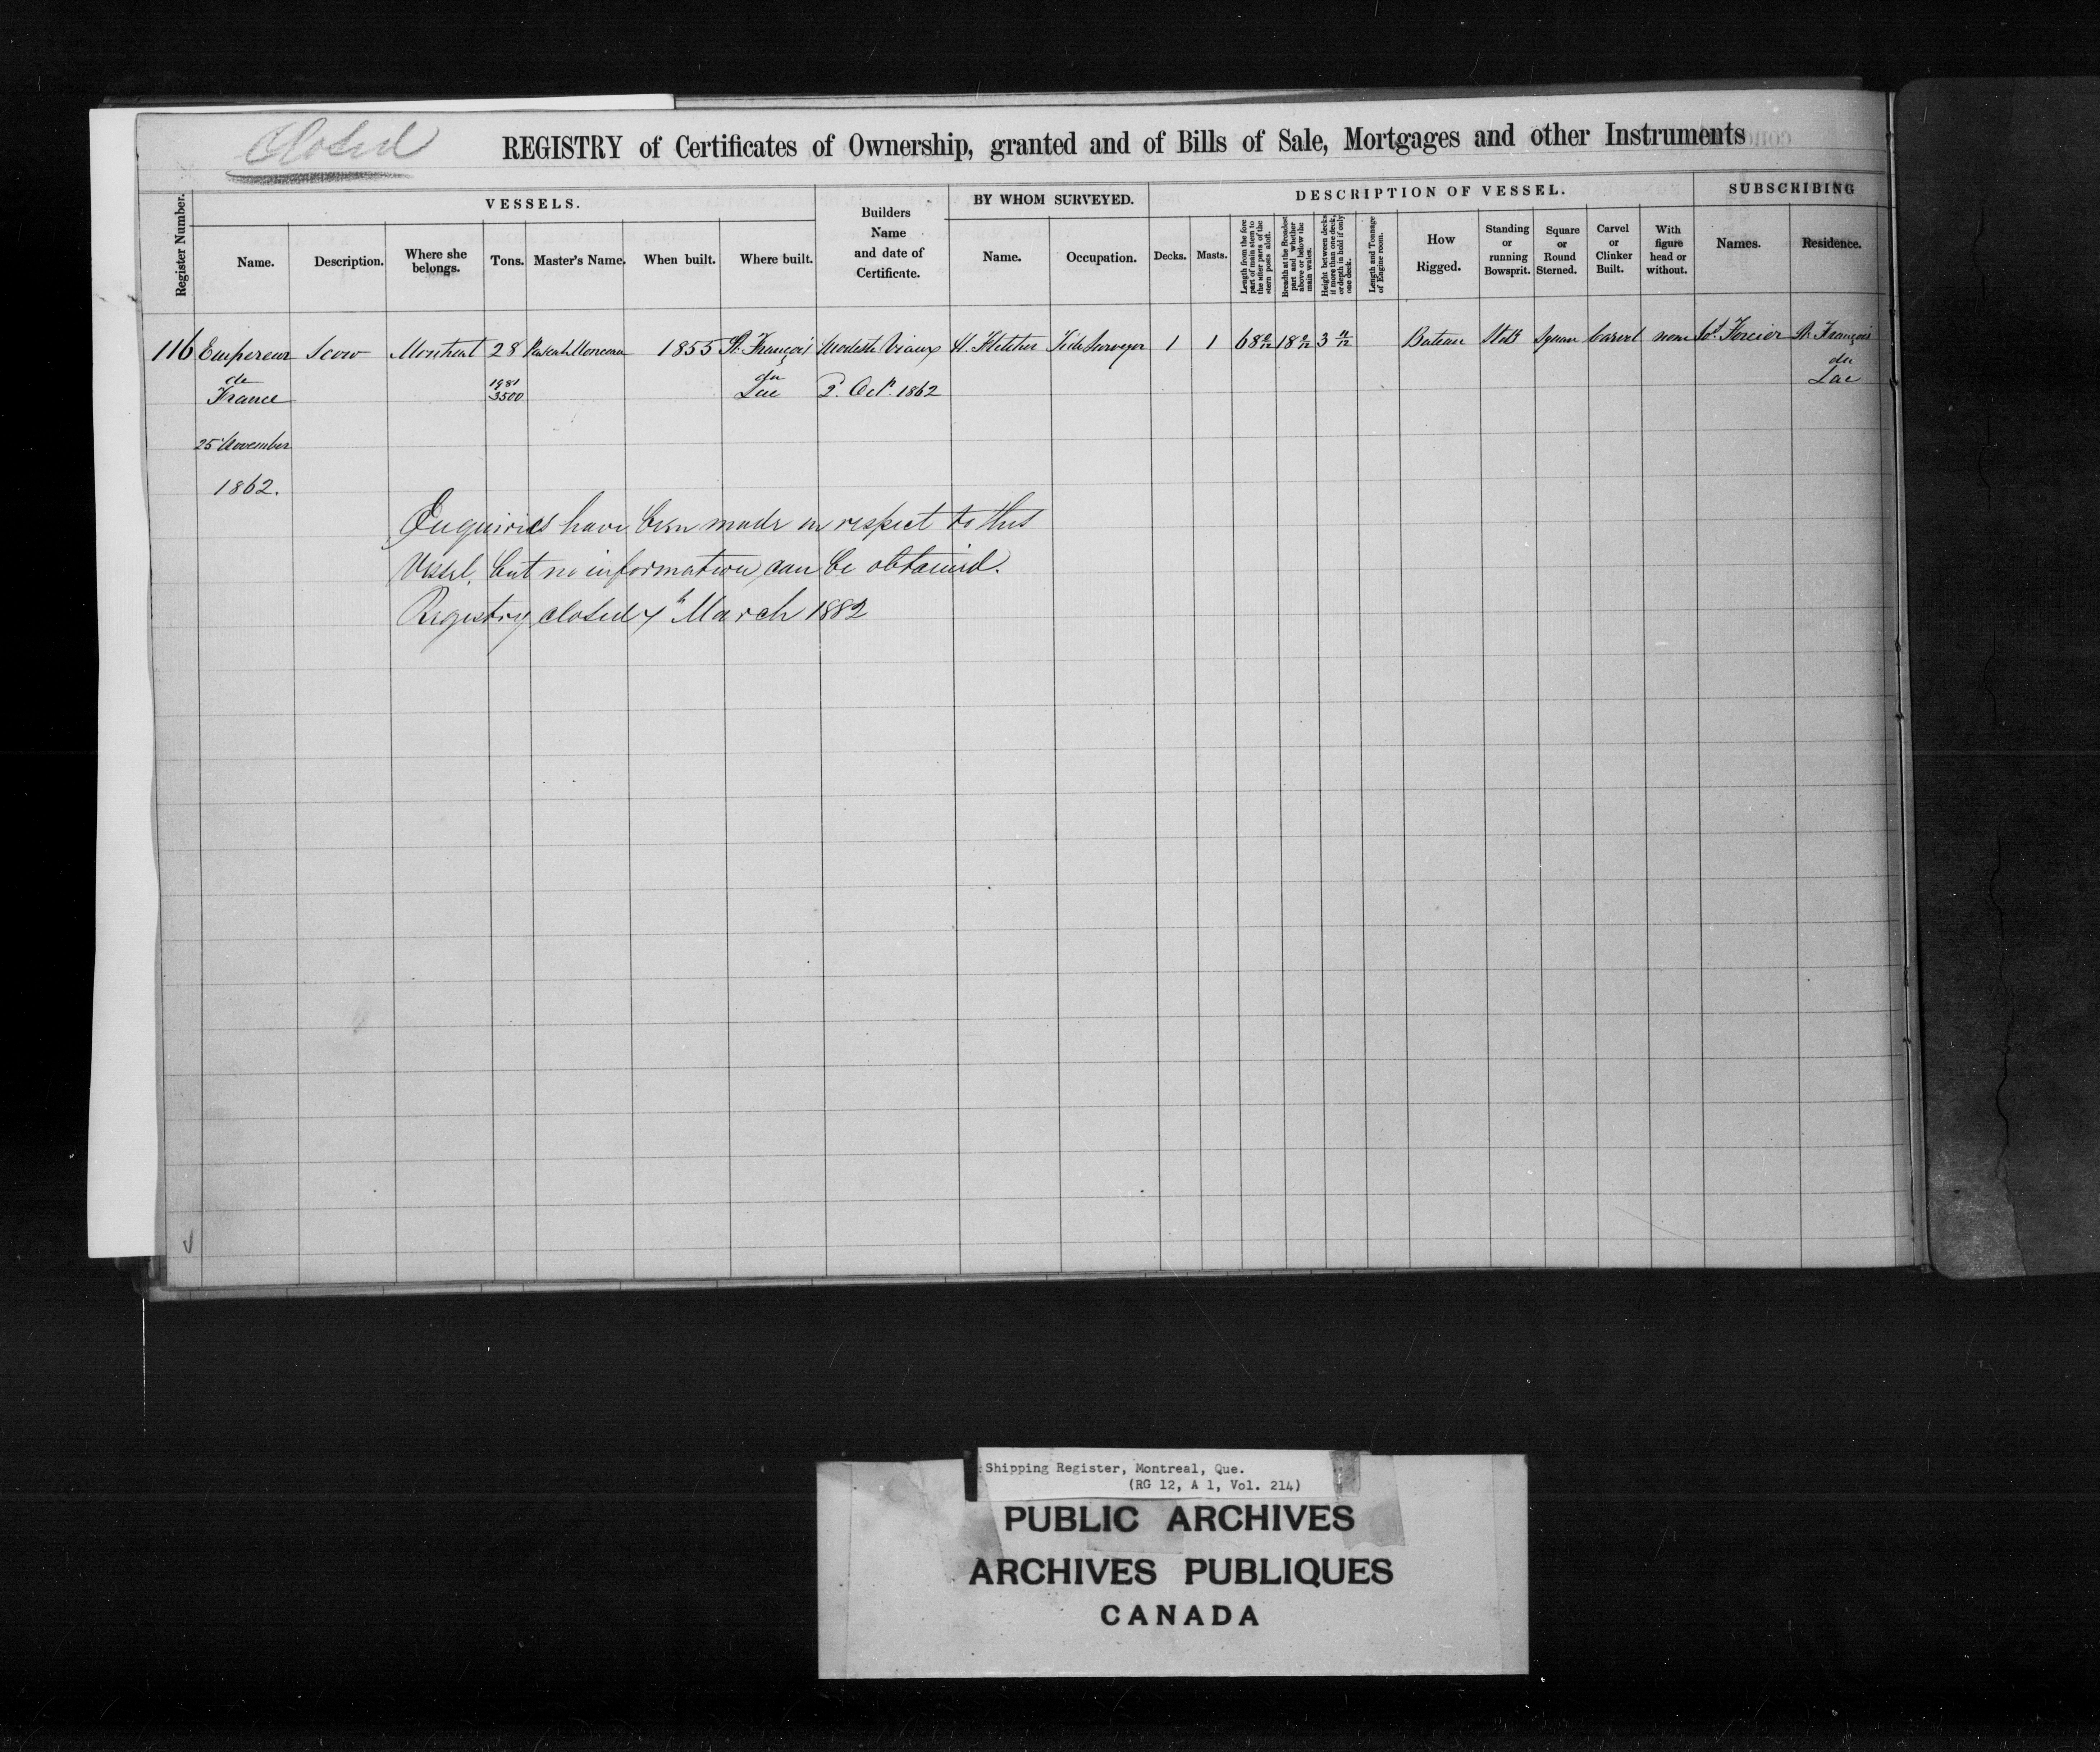 Closed
REGISTRY of Certificates of Ownership, granted and of Bills of Sale, Mortgages and other Instruments
Register Number.
VESSELS.
Name.
Description.
Where she belongs.
Tons.
Master's Name.
When built.
Where built.
Builders
Name
and date of
Certificate.
BY WHOM SURVEYED.
Name.
Occupation.
DESCRIPTION OF VESSEL.
Decks.
Masts.
Length from the fore part of main stem to the after parts of the stern posts aloft.
Breadth at the Broadest part and whether above or below the main wales.
Height between decks if more than one deck, or depth in hold if only one deck.
Length and Tonnage of Engine room.
How Rigged.
Standing or running Bowsprit.
Square or Round Sterned.
Carvel or Clinker Built.
With figure head or without.
SUBSCRIBING
Names.
Residence.
116 Empereur Scow Montreal 28 1855 St. François H. Fletcher Tide Surveyor 1 1 68 18 3 11/12 Bateau Square Carvel none Forcier St. François
de France 1981/3500 du Lac 2. Oct. 1862 du Lac
25 November
1862.
Enquiries have been made in respect to this
Vessel, but no information can be obtained.
Registry closed 7th March 1882
Shipping Register, Montreal, Que.
(RG 12, A 1, Vol. 214)
PUBLIC ARCHIVES
ARCHIVES PUBLIQUES
CANADA